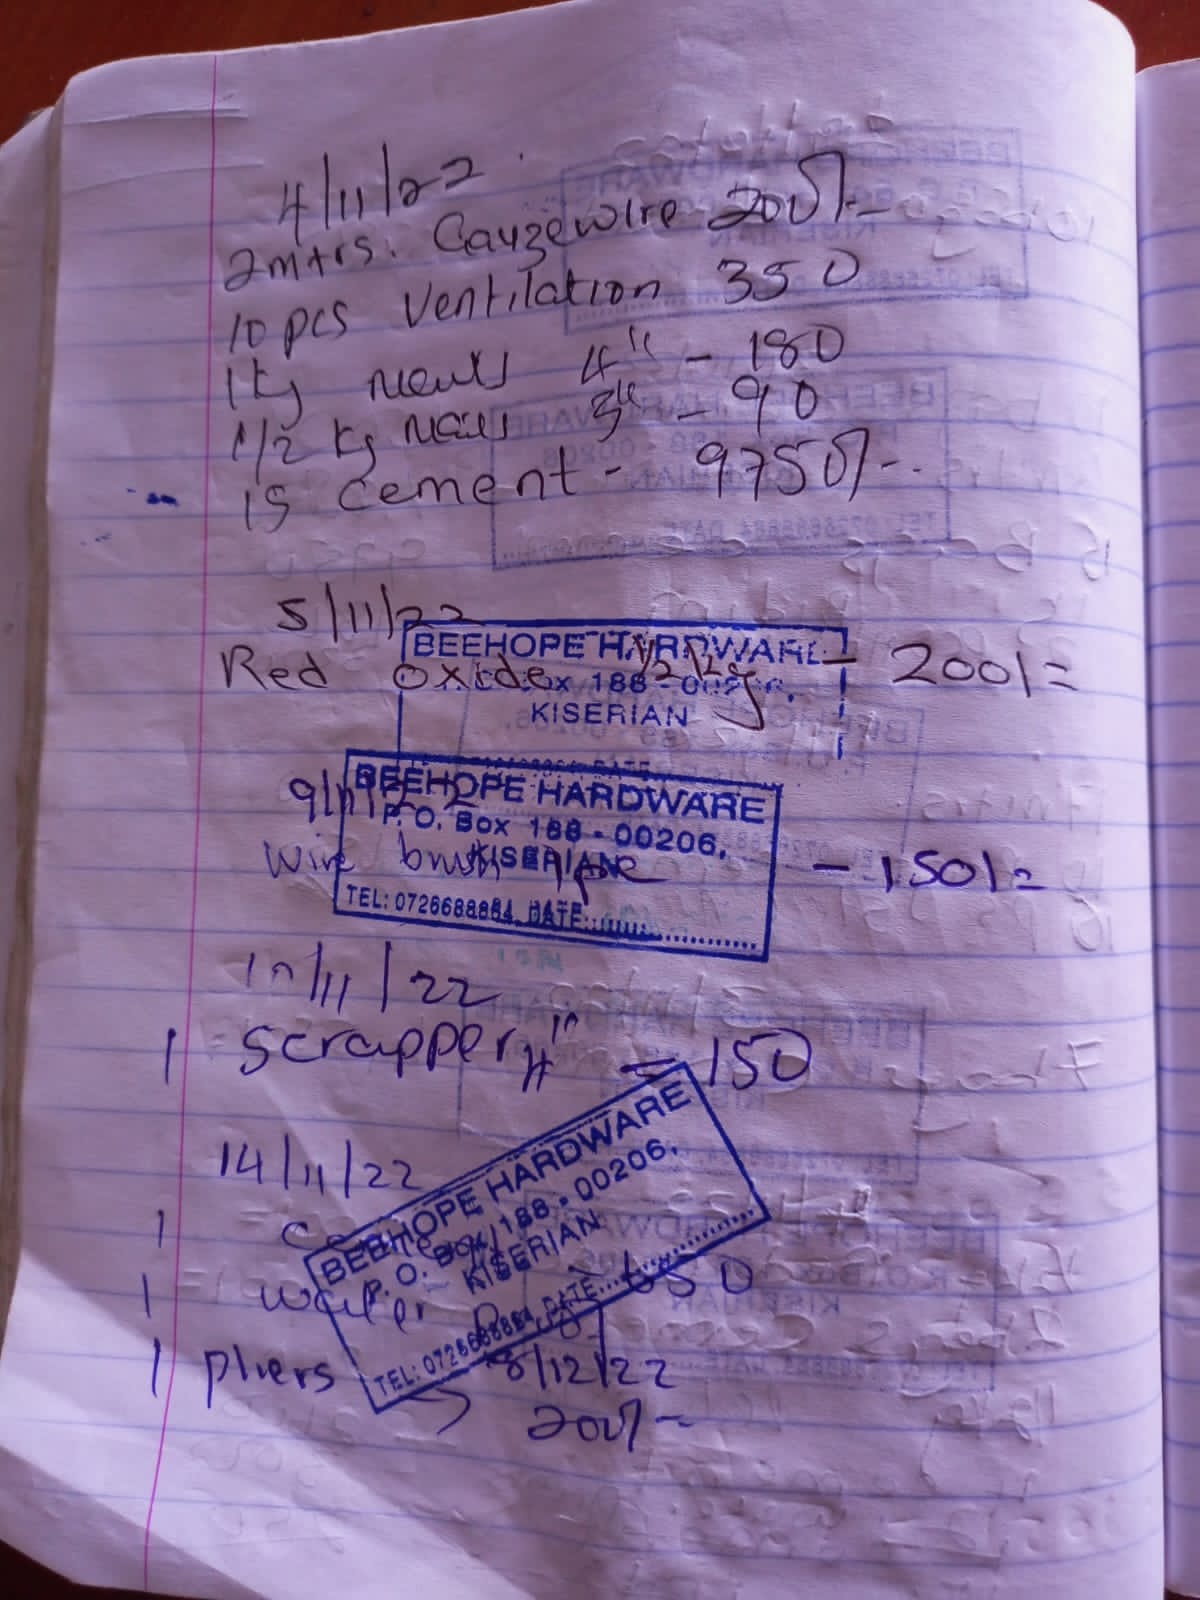 4/11/22
2mtrs. Gauzewire 200/-
10 pcs Ventilation 350
1kg nails 4" - 180
1/2 kg nails 3" - 90
15 cement - 9750/-
5/11/22
BEEHOPE HARDWARE
Red oxide 1/2 kg - 200/=
P.O. Box 188 - 00206,
KISERIAN
9/11/22
BEEHOPE HARDWARE
P. O. Box 188 - 00206,
KISERIAN
wire brush 1pc - 150/=
TEL: 0726688884 DATE:
10/11/22
1 scrapper 4" = 150
14/11/22
BEEHOPE HARDWARE
P. O. Box 188 - 00206,
KISERIAN
TEL: 0726688884 DATE
1
1 650
1 pliers 8/12/22
200/-